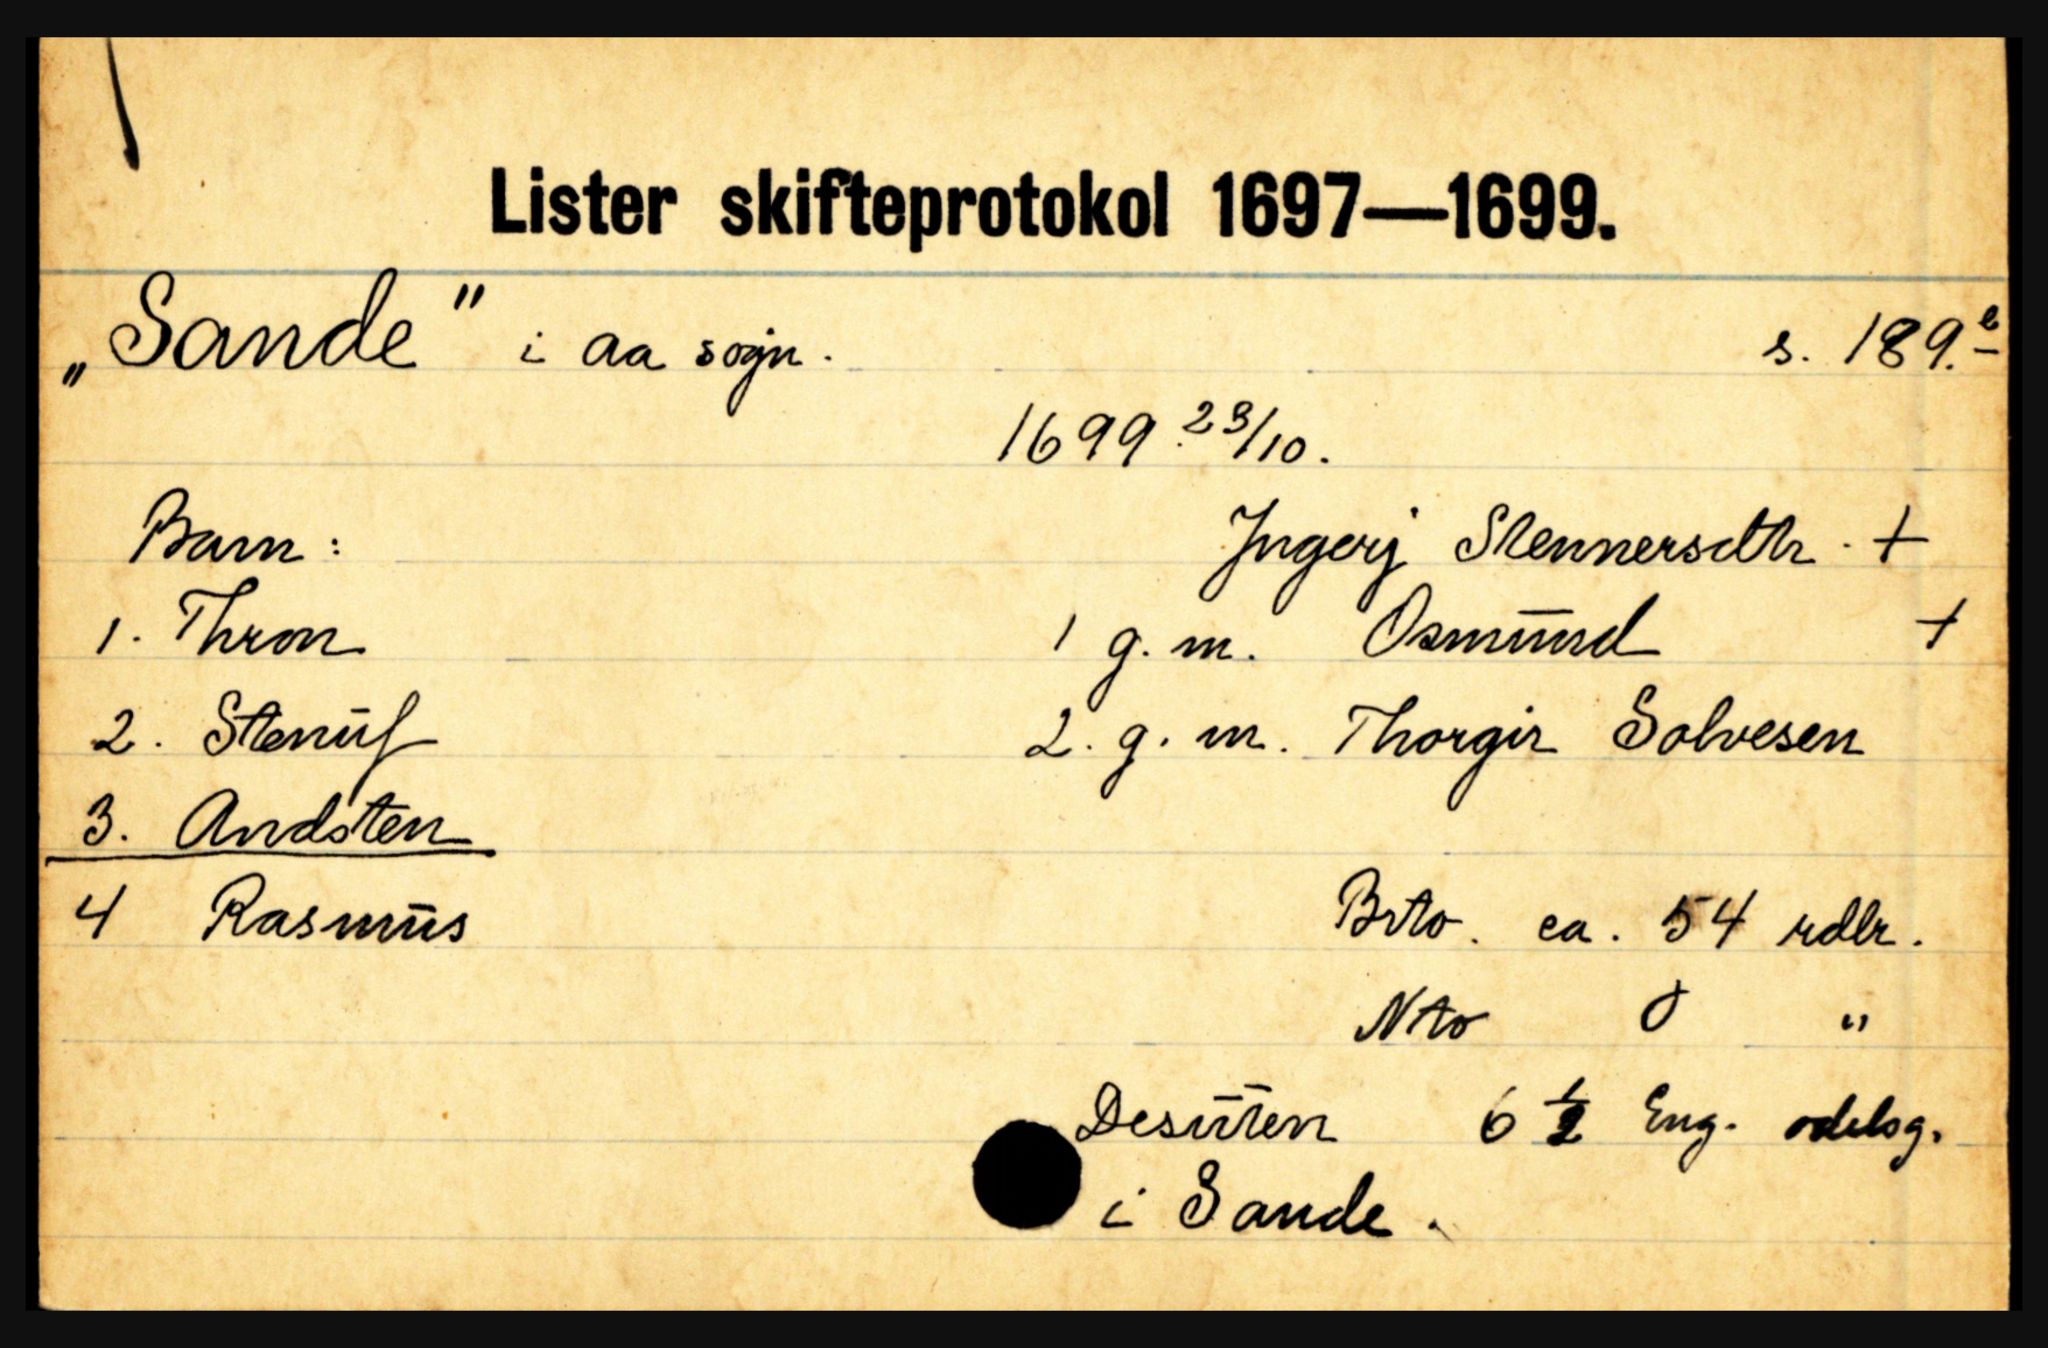 Lister skifteprotokol 1697—1699.
„Sande" i Aa sogn. s. 189.b
1699 23/10.
Barn: Ingerj Stennersdtr. +
1. Thron 1 g. m. Osmund +
2. Stenulf 2. g. m. Thorgir Solvesen
3. Andsten
4 Rasmus Brto. ca. 54 rdlr.
Nto 0 "
Desuten 6 1/2 Eng. odelsg.
i Sande.